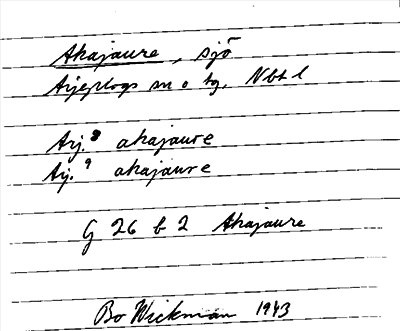 Akajaure, sjö
Arjeplogs sn o tg, Nbtl
Arj.8 akajaure
Arj.9 akajaure
G 26 b 2 Akajaure
Bo Wickman 1943